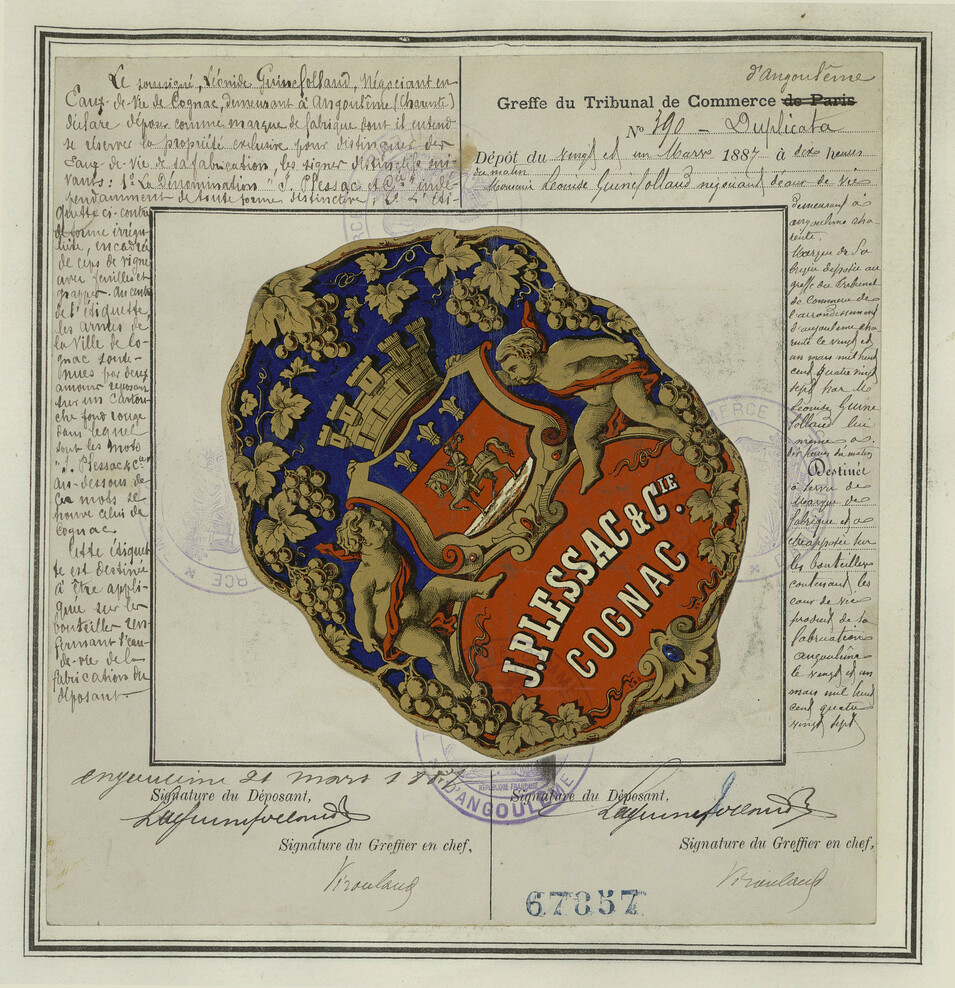 Le soussigné, Léonide Guinefolland, Négociant en
Eaux-de-Vie de Cognac, demeurant à Angoulême (Charente)
déclare déposer comme marque de fabrique dont il entend
se réserver la propriété exclusive pour distinguer des
Eaux-de-Vie de sa fabrication, les signes distinctifs sui-
vants: 1º La Dénomination "J. Plessac et Cie" indé-
pendamment de toute forme distinctive; 2º L'éti-
quette ci-contre
de forme irrégu-
lière, encadrée
de ceps de vigne
avec feuilles et
grappes. Au centre
de l'étiquette,
les armes de
la Ville de Co-
gnac soute-
nues par deux
amours reposant
sur un cartou-
che fond rouge
dans lequel
sont les mots
"J. Plessac & Cie
au-dessous de
ces mots se
trouve celui de
Cognac.
Cette étiquet-
te est destinée
à être appli-
quée sur les
bouteilles ren-
fermant l'eau-
de-vie de la
fabrication du
déposant
d'Angoulême
Greffe du Tribunal de Commerce de Paris
Nº 390 - Duplicata
Dépôt du vingt et un Mars 1887 à dix heures
du matin
Monsieur Guinefolland négociant eaux de vie
demeurant à
angoulême cha-
rente.
Marque de fa-
brique déposée au
greffe du Tribunal
de Commerce de
l'arrondissement
d'angoulême cha-
rente le vingt et
un mars mil huit
cent quatre vingt
sept par M
Guine
folland lui
même à
dix heures du matin
Destinée
à servir de
Marque de
fabrique et à
être apposée sur
les bouteilles
contenant les
eaux de vie
produit de sa
fabrication
angoulême
le vingt et un
mars mil huit
cent quatre
vingt sept
J. PLESSAC & CIE.
COGNAC
angoulême 21 mars 1887
Signature du Déposant,
Signature du Déposant,
RÉPUBLIQUE FRANÇAISE
D'ANGOULÊME
Signature du Greffier en chef,
Signature du Greffier en chef,
67857